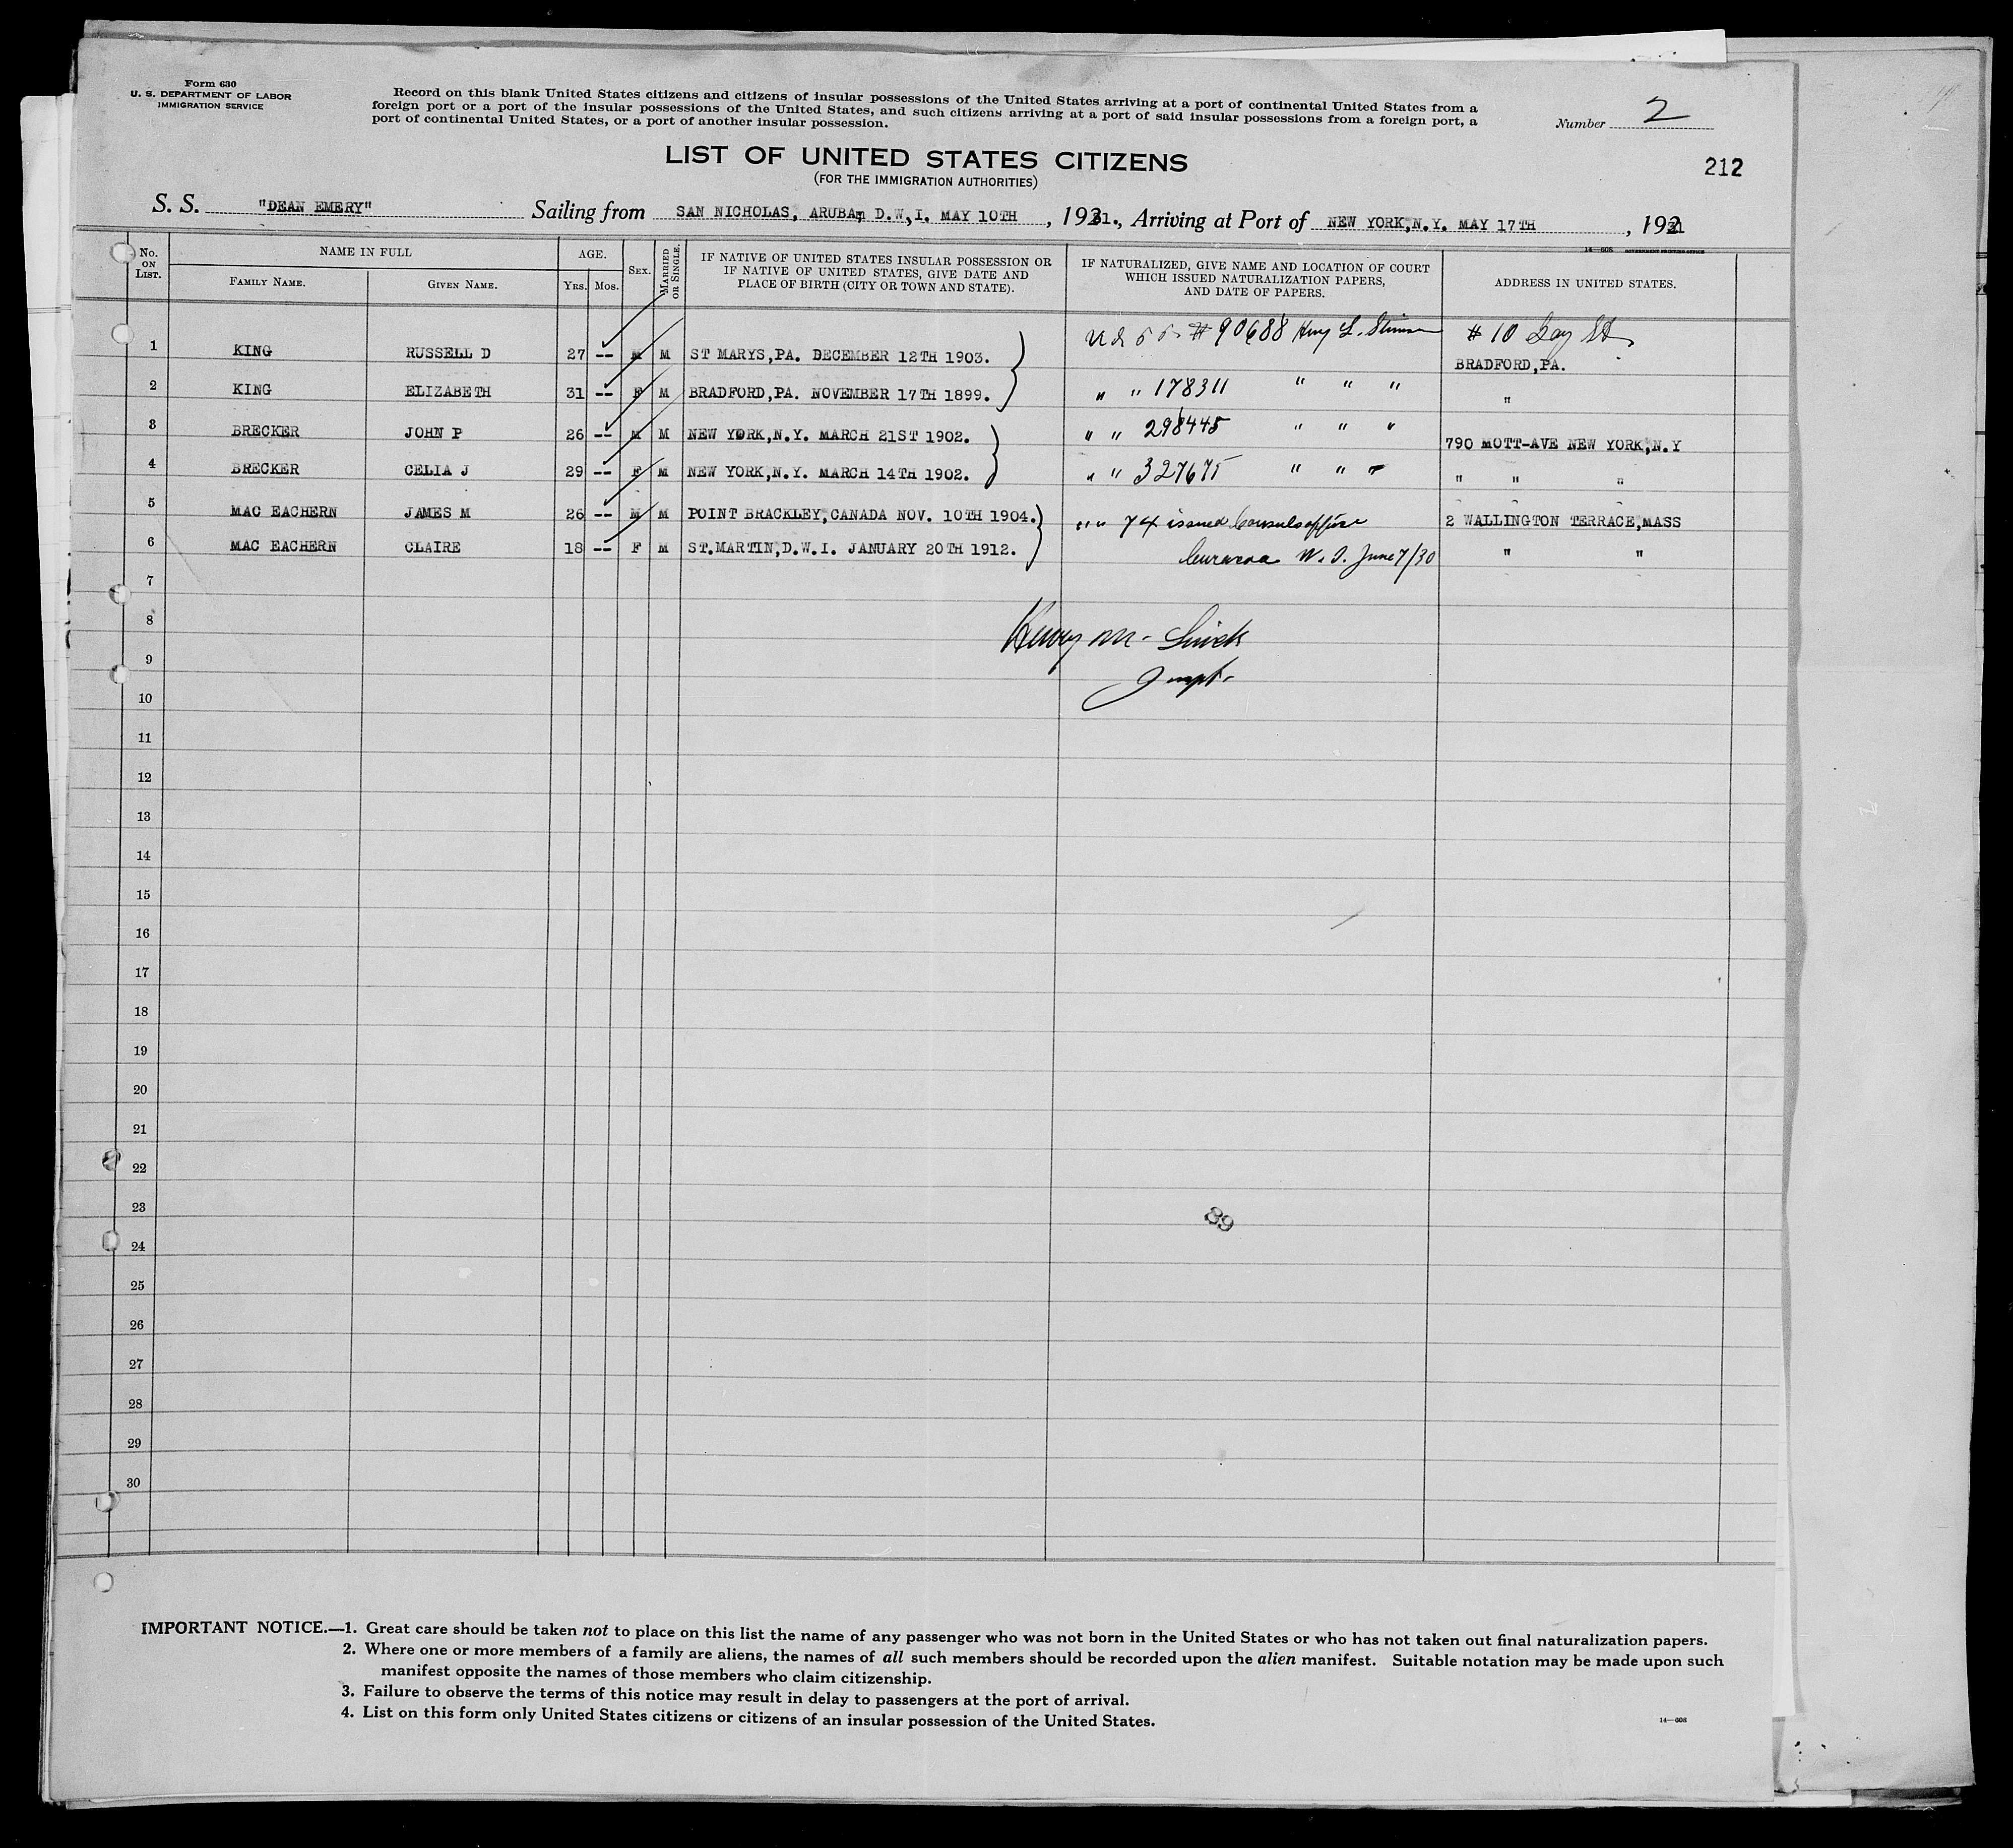 Form 630
U. S. DEPARTMENT OF LABOR
IMMIGRATION SERVICE
Record on this blank United States citizens and citizens of insular possessions of the United States arriving at a port of continental United States from a
foreign port or a port of the insular possessions of the United States, and such citizens arriving at a port of said insular possessions from a foreign port, a
port of continental United States, or a port of another insular possession.
Number 2
LIST OF UNITED STATES CITIZENS
(FOR THE IMMIGRATION AUTHORITIES)
212
S. S. "DEAN EMERY" Sailing from SAN NICHOLAS, ARUBA, D.W,I. MAY 10TH, 1931., Arriving at Port of NEW YORK,N.Y. MAY 17TH, 1931
14—608 GOVERNMENT PRINTING OFFICE
No. ON LIST. NAME IN FULL FAMILY NAME. GIVEN NAME. AGE. YRS. MOS. SEX. MARRIED OR SINGLE. IF NATIVE OF UNITED STATES INSULAR POSSESSION OR IF NATIVE OF UNITED STATES, GIVE DATE AND PLACE OF BIRTH (CITY OR TOWN AND STATE). IF NATURALIZED, GIVE NAME AND LOCATION OF COURT WHICH ISSUED NATURALIZATION PAPERS, AND DATE OF PAPERS. ADDRESS IN UNITED STATES.
1 KING RUSSELL D 27 -- M M ST MARYS,PA. DECEMBER 12TH 1903. # 90688 Henry L. Stimson # 10 St
BRADFORD,PA.
2 KING ELIZABETH 31 -- F M BRADFORD,PA. NOVEMBER 17TH 1899. " " 178311 " " " "
3 BRECKER JOHN P 26 -- M M NEW YORK,N.Y. MARCH 21ST 1902. " " 298445 " " " 790 MOTT-AVE NEW YORK,N.Y
4 BRECKER CELIA J 29 -- F M NEW YORK,N.Y. MARCH 14TH 1902. " " 327675 " " " " " "
5 MAC EACHERN JAMES M 26 -- M M POINT BRACKLEY,CANADA NOV. 10TH 1904. " " 74 issued Consuls office 2 WALLINGTON TERRACE,MASS
6 MAC EACHERN CLAIRE 18 -- F M ST.MARTIN,D.W.I. JANUARY 20TH 1912. Curacoa W. I. June 7/30 " "
7
8
Inspt.
9
10
11
12
13
14
15
16
17
18
19
20
21
22
23
89
24
25
26
27
28
29
30
IMPORTANT NOTICE.—1. Great care should be taken not to place on this list the name of any passenger who was not born in the United States or who has not taken out final naturalization papers.
2. Where one or more members of a family are aliens, the names of all such members should be recorded upon the alien manifest. Suitable notation may be made upon such
manifest opposite the names of those members who claim citizenship.
3. Failure to observe the terms of this notice may result in delay to passengers at the port of arrival.
4. List on this form only United States citizens or citizens of an insular possession of the United States.
14—608